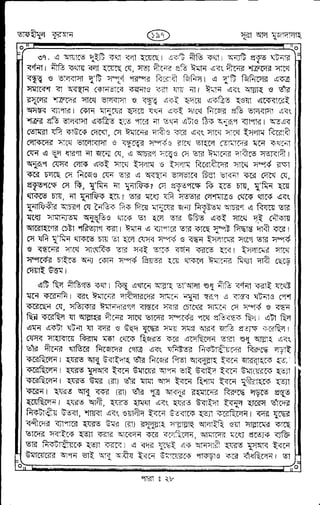 তাফহীমুল কুরআন
১৯৭
সূরা আল মুজাদালাহ
৩৭. এ আয়াতে দু'টি কথা বলা হয়েছে। একটি নীতি কথা। অন্যটি প্রকৃত ঘটনার
বর্ণনা। নীতি কথায় বলা হয়েছে যে, সত্য দীনের প্রতি ঈমান এবং দীনের শত্রুদের সাথে
বন্ধুত্ব ও ভালবাসা দু'টি সম্পূর্ণ পরস্পর বিরোধী জিনিস। এ দু'টি জিনিসের একত্র
সমাবেশ বা অবস্থান কোনভাবে কল্পনাও করা যায় না। ঈমান এবং আল্লাহ ও তাঁর
রসূলের শত্রুদের সাথে ভালবাসা ও বন্ধুত্ব একই হৃদয়ে একত্রিত হওয়া একেবারেই
অসম্ভব ব্যাপার। কোন মানুষের হৃদয়ে যখন একই সাথে নিজের প্রতি ভালবাসা এবং
শত্রুর প্রতি ভালবাসা একত্রিত হতে পারে না তখন এটাও ঠিক অনুরূপ ব্যাপার। অতএব
তোমরা যদি কাউকে দেখো, সে ঈমানের দাবীও করে এবং সাথে সাথে ইসলাম বিরোধী
লোকদের সাথে ভালবাসা ও বন্ধুত্বের সম্পর্কও রাখে তাহলে তোমাদের মনে কখনো
যেন এ ভুল ধারণা না জন্মে যে, এ আচরণ সত্ত্বেও সে তার ঈমানের দাবীতে সত্যবাদী।
অনুরূপ যেসব লোক একই সাথে ইসলাম ও ইসলাম বিরোধীদের সাথে সম্পর্ক রক্ষা
করে চলছে সে নিজেও যেন তার এ অবস্থান ভালভাবে চিন্তা ভাবনা করে দেখে যে,
প্রকৃতপক্ষে সে কি, মু'মিন না মুনাফিক? সে প্রকৃতপক্ষে কি হতে চায়, মু'মিন হয়ে
থাকতে চায়, না মুনাফিক হয়ে। তার মধ্যে যদি সততার লেশমাত্রও থেকে থাকে এবং
মুনাফিকীর আচরণ যে নৈতিক দিক দিয়ে মানুষের জন্য নিকৃষ্টতম আচরণ এ বিষয়ে তার
মধ্যে সামান্যতম অনুভূতিও থাকে তা হলে তার উচিত একই সাথে দুই নৌকায়
আরোহণের চেষ্টা পরিত্যাগ করা। ঈমান এ ব্যাপারে তার কাছে সুস্পষ্ট সিদ্ধান্ত দাবী করে।
সে যদি মু'মিন থাকতে চায় তা হলে যেসব সম্পর্ক ও বন্ধন ইসলামের সাথে তার সম্পর্ক
ও বন্ধনের সাথে সাংঘর্ষিক তার সবই তাকে বর্জন করতে হবে। ইসলামের সাথে
সম্পর্কের চাইতে অন্য কোন সম্পর্ক প্রিয়তর হয়ে থাকলে ঈমানের মিথ্যা দাবী ছেড়ে
দেয়াই উত্তম।
এটি ছিল নীতিগত কথা। কিন্তু এখানে আল্লাহ তা'আলা শুধু নীতি বর্ণনা করাই যথেষ্ট
মনে করেননি। বরং ঈমানের দাবীদারদের সামনে নমুনা স্বরূপ এ বাস্তব ঘটনাও পেশ
করেছেন যে, সত্যিকার ঈমানদারগণ বাস্তবে সবার চোখের সামনে সে সম্পর্ক ও বন্ধন
ছিন্ন করেছিল যা আল্লাহর দীনের সাথে তাদের সম্পর্কের পথে প্রতিবন্ধক ছিল। এটা ছিল
এমন একটা ঘটনা যা বদর ও উহুদ যুদ্ধের সময় সমগ্র আরব জাতি প্রত্যক্ষ করেছিল।
যেসব সাহাবায়ে কিরাম মক্কা থেকে হিজরত করে এসেছিলেন তারা শুধু আল্লাহ এবং
তাঁর দীনের খাতিরে নিজেদের গোত্র এবং ঘনিষ্টতর নিকটাত্মীয়দের বিরুদ্ধে লড়াই
করেছিলেন। হযরত আবু উবাইদাহ তাঁর নিজের পিতা আবদুল্লাহ ইবনে জাররাহকে হত্যা
করেছিলেন। হযরত মুসআব ইবনে উমায়ের আপন ভাই উবাইদ ইবনে উমায়েরকে হত্যা
করেছিলেন। হযরত উমর (রা) তাঁর মামা আস ইবনে হিশাম ইবনে মুগীরাহকে হত্যা
করেন। হযরত আবু বকর (রা) তাঁর পুত্র আবদুর রহমানের বিরুদ্ধে লড়তে প্রস্তুত
হয়েছিলেন। হযরত আলী, হযরত হামযা এবং হযরত উবাইদা ইবনুল হারেস তাঁদের
নিকটাত্মীয় উতবা, শায়বা এবং ওয়ালীদ ইবনে উতবাকে হত্যা করেছিলেন। বদর যুদ্ধের
বন্দীদের ব্যাপারে হযরত উমর (রা) রসূলুল্লাহ সাল্লাল্লাহু আলাইহি ওয়া সাল্লামের কাছে
তাদের সবাইকে হত্যা করার আবেদন করে বলেছিলেন, আমাদের মধ্যে প্রত্যেক ব্যক্তি
তার নিকটাত্মীয়কে হত্যা করবে। এ বদর যুদ্ধেই এক আনসারী হযরত মুসআব ইবনে
উমায়েরের আপন ভাই আবু আযীয ইবনে উমায়েরকে পাকড়াও করে বাঁধছিলেন। তা
পারা : ২৮